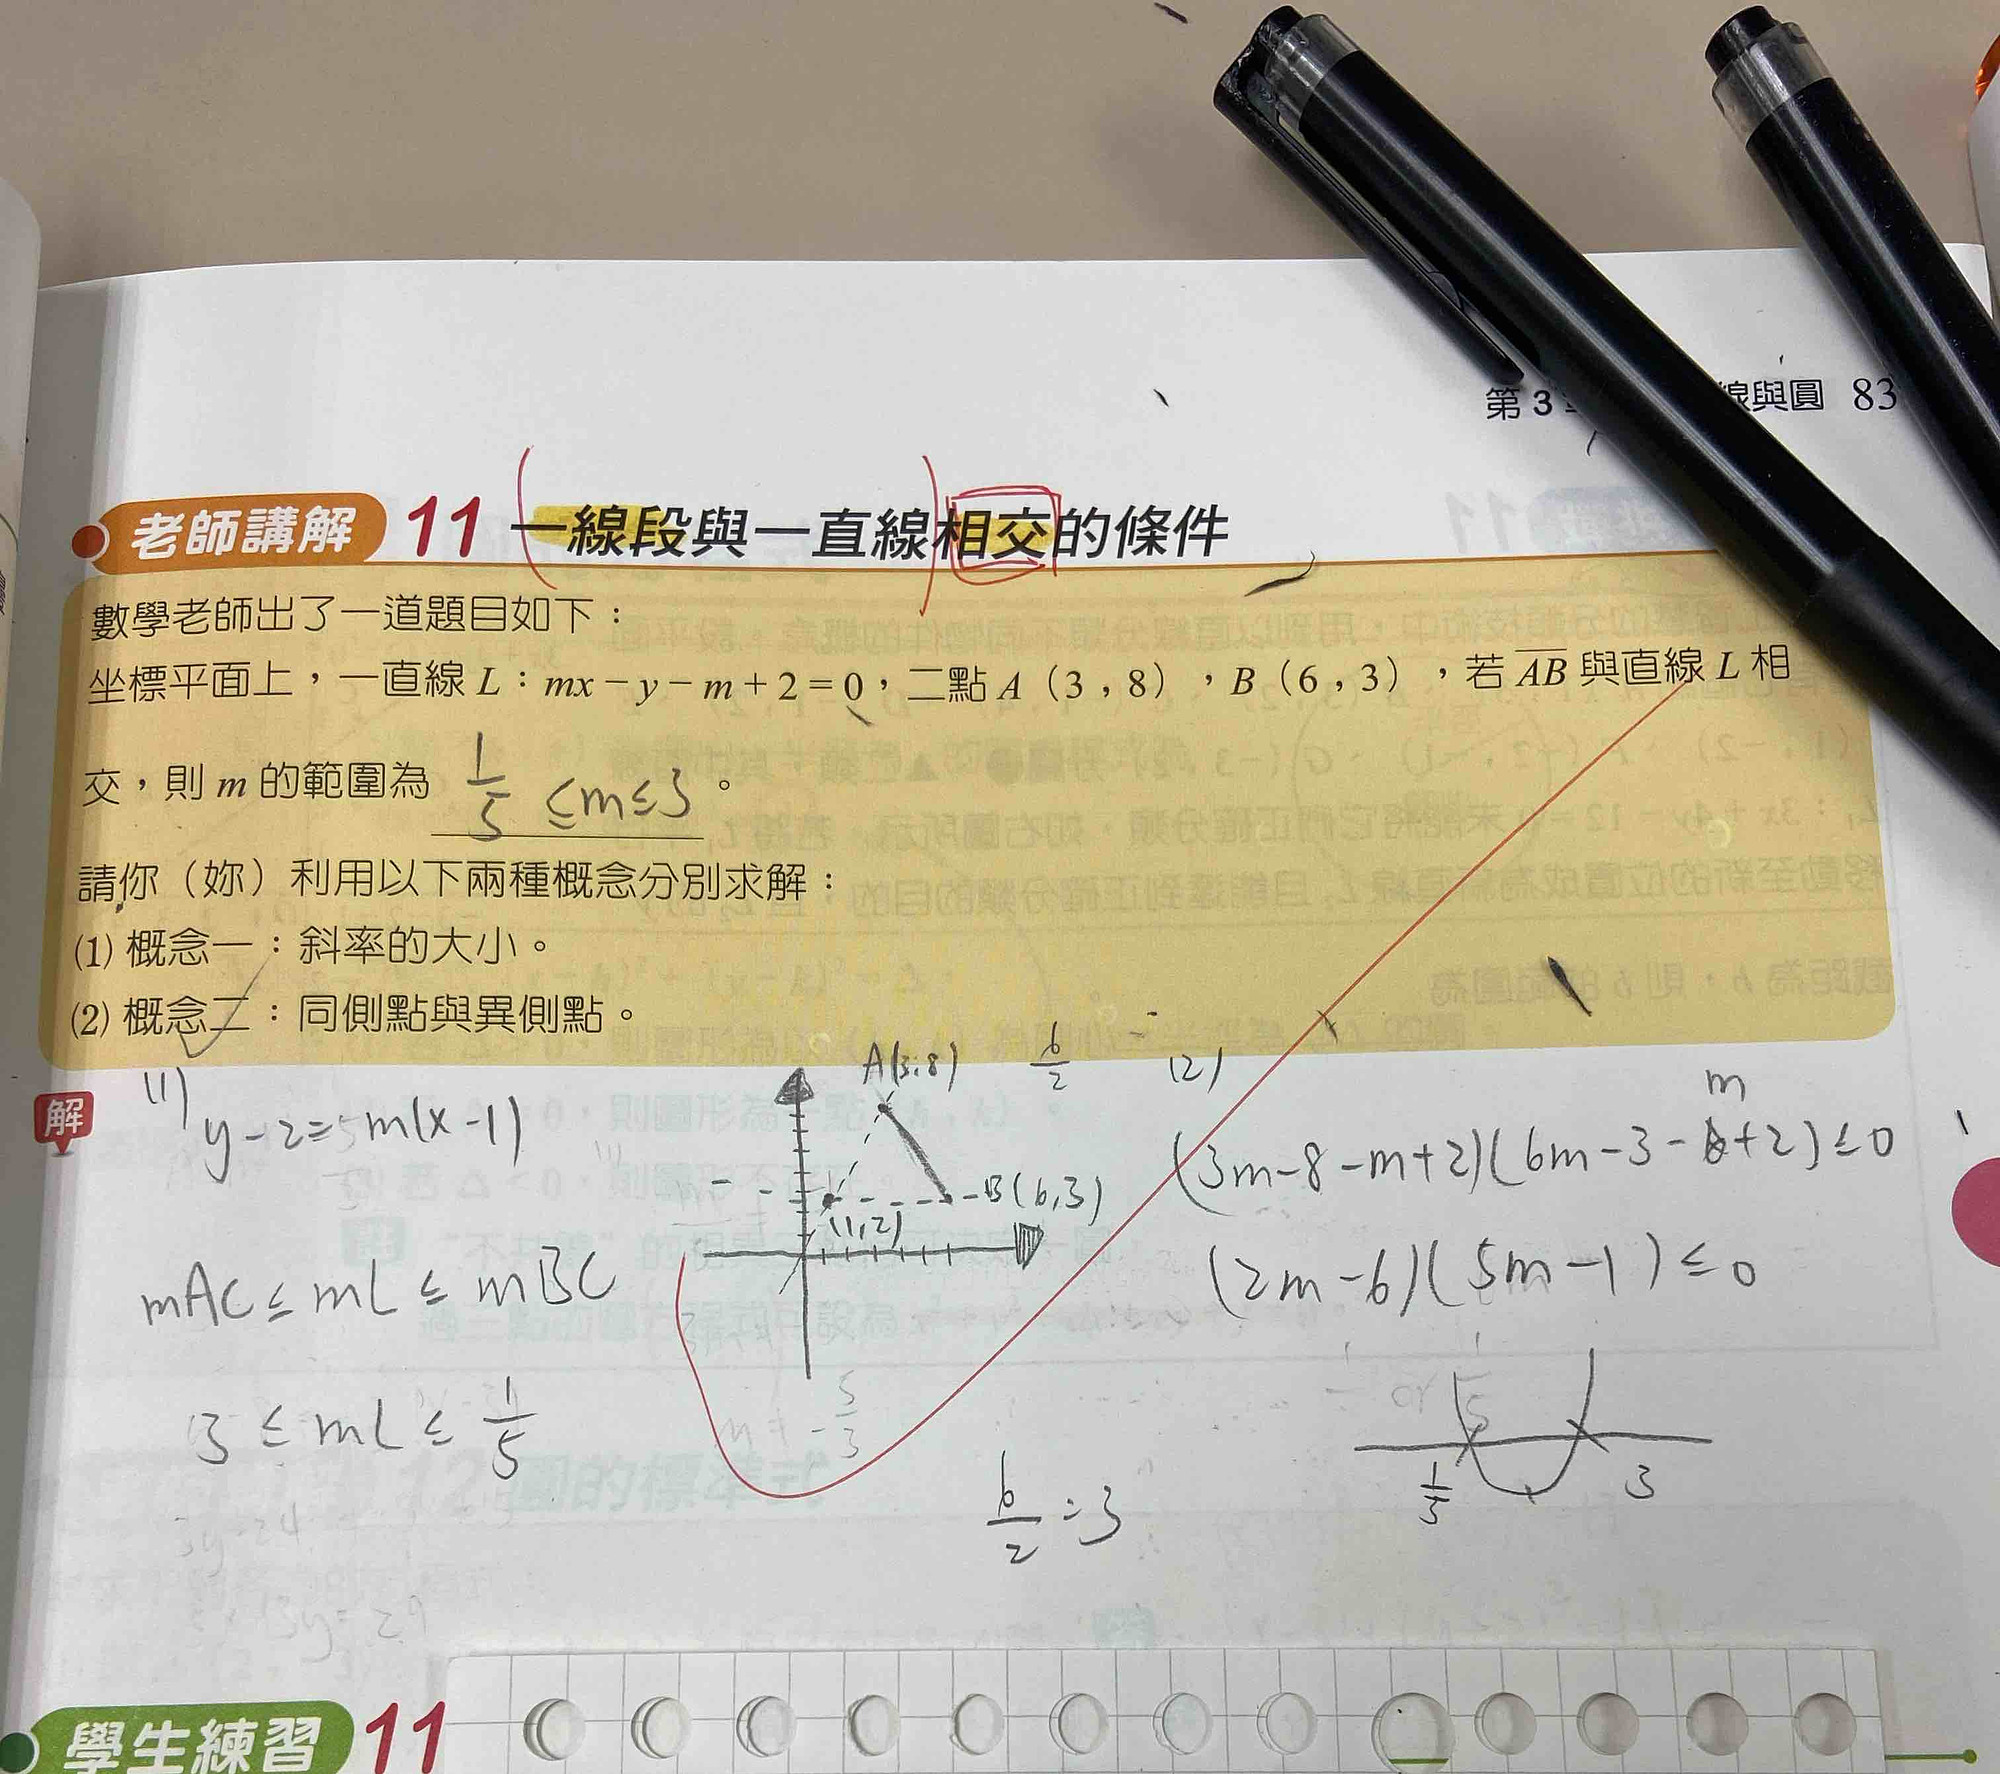 第3 線與圓 83
老師講解 11 一線段與一直線相交的條件
數學老師出了一道題目如下：
坐標平面上，一直線 L：mx－y－m＋2＝0，二點 A（3，8），B（6，3），若 AB 與直線 L 相
交，則 m 的範圍為 1/5 ≤m≤3 。
請你（妳）利用以下兩種概念分別求解：
(1) 概念一：斜率的大小。
(2) 概念二：同側點與異側點。
解
(1)
y-2=m(x-1)
mAC ≤ mL ≤ mBC
3 ≤ mL ≤ 1/5
A(3,8)
B(6,3)
(1,2)
6/2
6/2=3
(2)
m
(3m-8-m+2)(6m-3- +2)≤0
(2m-6)(5m-1)≤0
1/5 3
學生練習 11